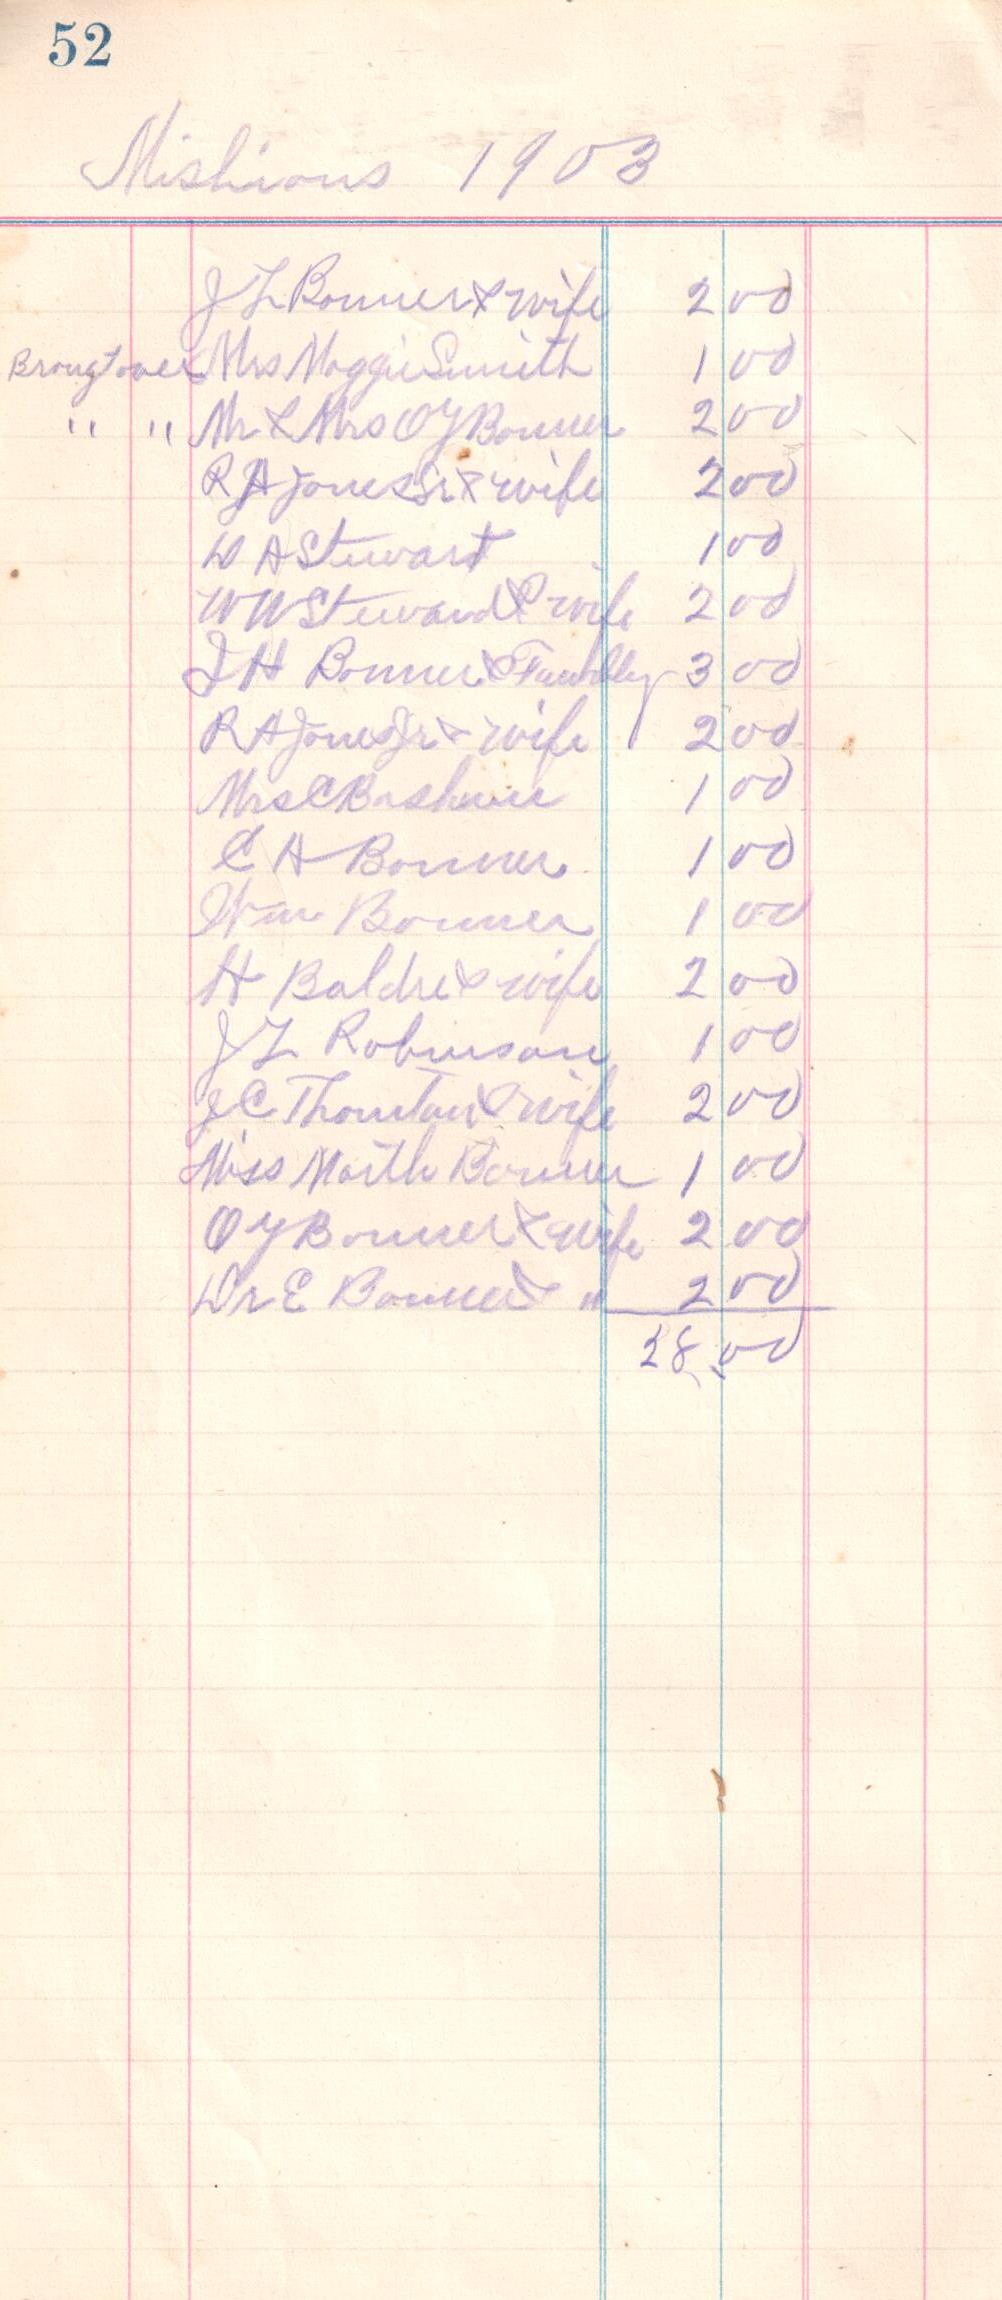 52
Mishions 1903
J L Bonner & wife 2 00
Brougt over Mrs Maggie Smith 1 00
" " Mr & Mrs O Y Bonner 2 00
R A Jones Sr & wife 2 00
W A Stewart 1 00
W W Steward & wife 2 00
J H Bonner & Fambley 3 00
R A Jones Jr & wife 2 00
Mrs C Bashure 1 00
C A Bonner 1 00
Wm Bonner 1 00
H Baldre & wife 2 00
J L Robinson 1 00
J C Thornton & wife 2 00
Miss Marth Bonner 1 00
O Y Bonner & wife 2 00
Dr E Bonner & " 2 00
28,00